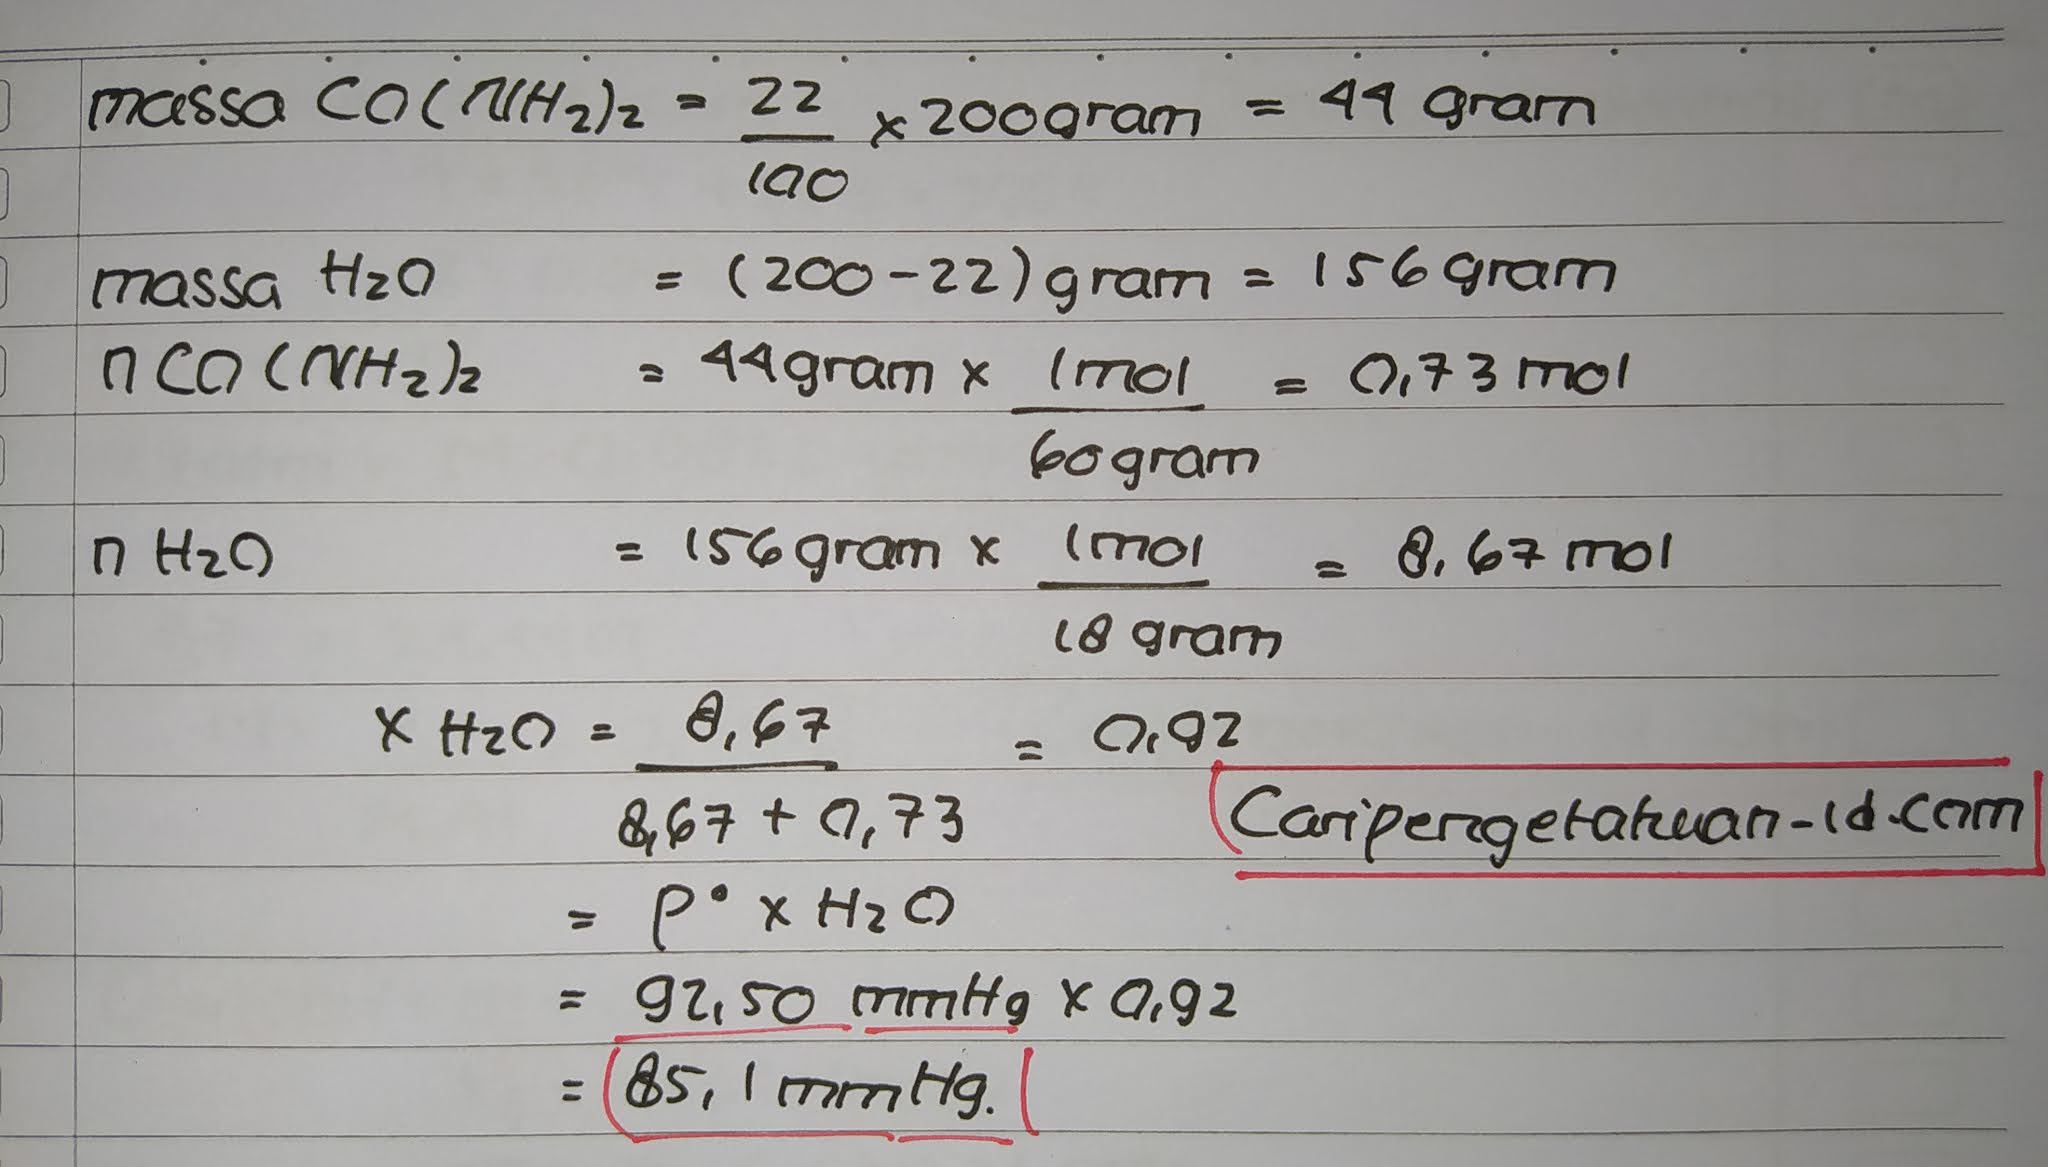 massa CO(NH2)2 = 22/100 x 200gram = 44 gram
massa H2O = (200-22) gram = 156 gram
n CO(NH2)2 = 44gram x 1mol/60gram = 0,73 mol
n H2O = 156 gram x 1mol/18 gram = 8,67 mol
X H2O = 8,67/8,67 + 0,73 = 0,92
Caripengetahuan-id.com
= P° x H2O
= 92,50 mmHg x 0,92
= 85,1 mmHg.